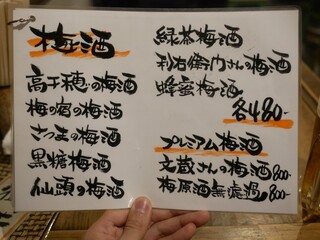 梅酒
高千穂の梅酒
梅の宿の梅酒
さつまの梅酒
黒糖梅酒
仙頭の梅酒
緑茶梅酒
利右衛門さんの梅酒
蜂蜜梅酒
各480-
プレミアム梅酒
文蔵さんの梅酒800-
梅原酒無濾過800-